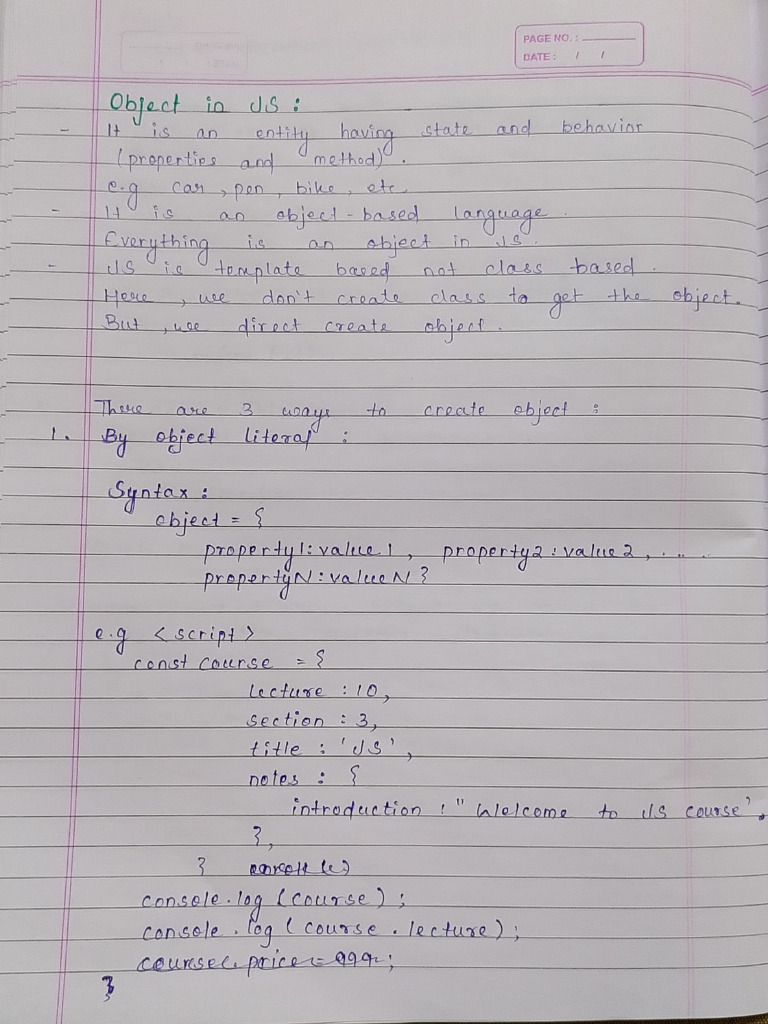 PAGE NO. :
DATE : / /
Object in JS :
- It is an entity having state and behavior
(properties and method) .
e.g car , pen , bike , etc.
- It is an object-based language .
Everything is an object in JS .
- JS is template based not class based .
Here , we don't create class to get the object.
But , we direct create object .
There are 3 ways to create object :
1. By object literal :
Syntax :
object = {
property1 : value1 , property2 : value2 , ....
propertyN : valueN }
e.g <script>
const course = {
lecture : 10,
section : 3,
title : 'JS' ,
notes : {
introduction : " Welcome to JS course ",
},
}
console.log (course) ;
console.log ( course . lecture) ;
course.price = 999 ;
}